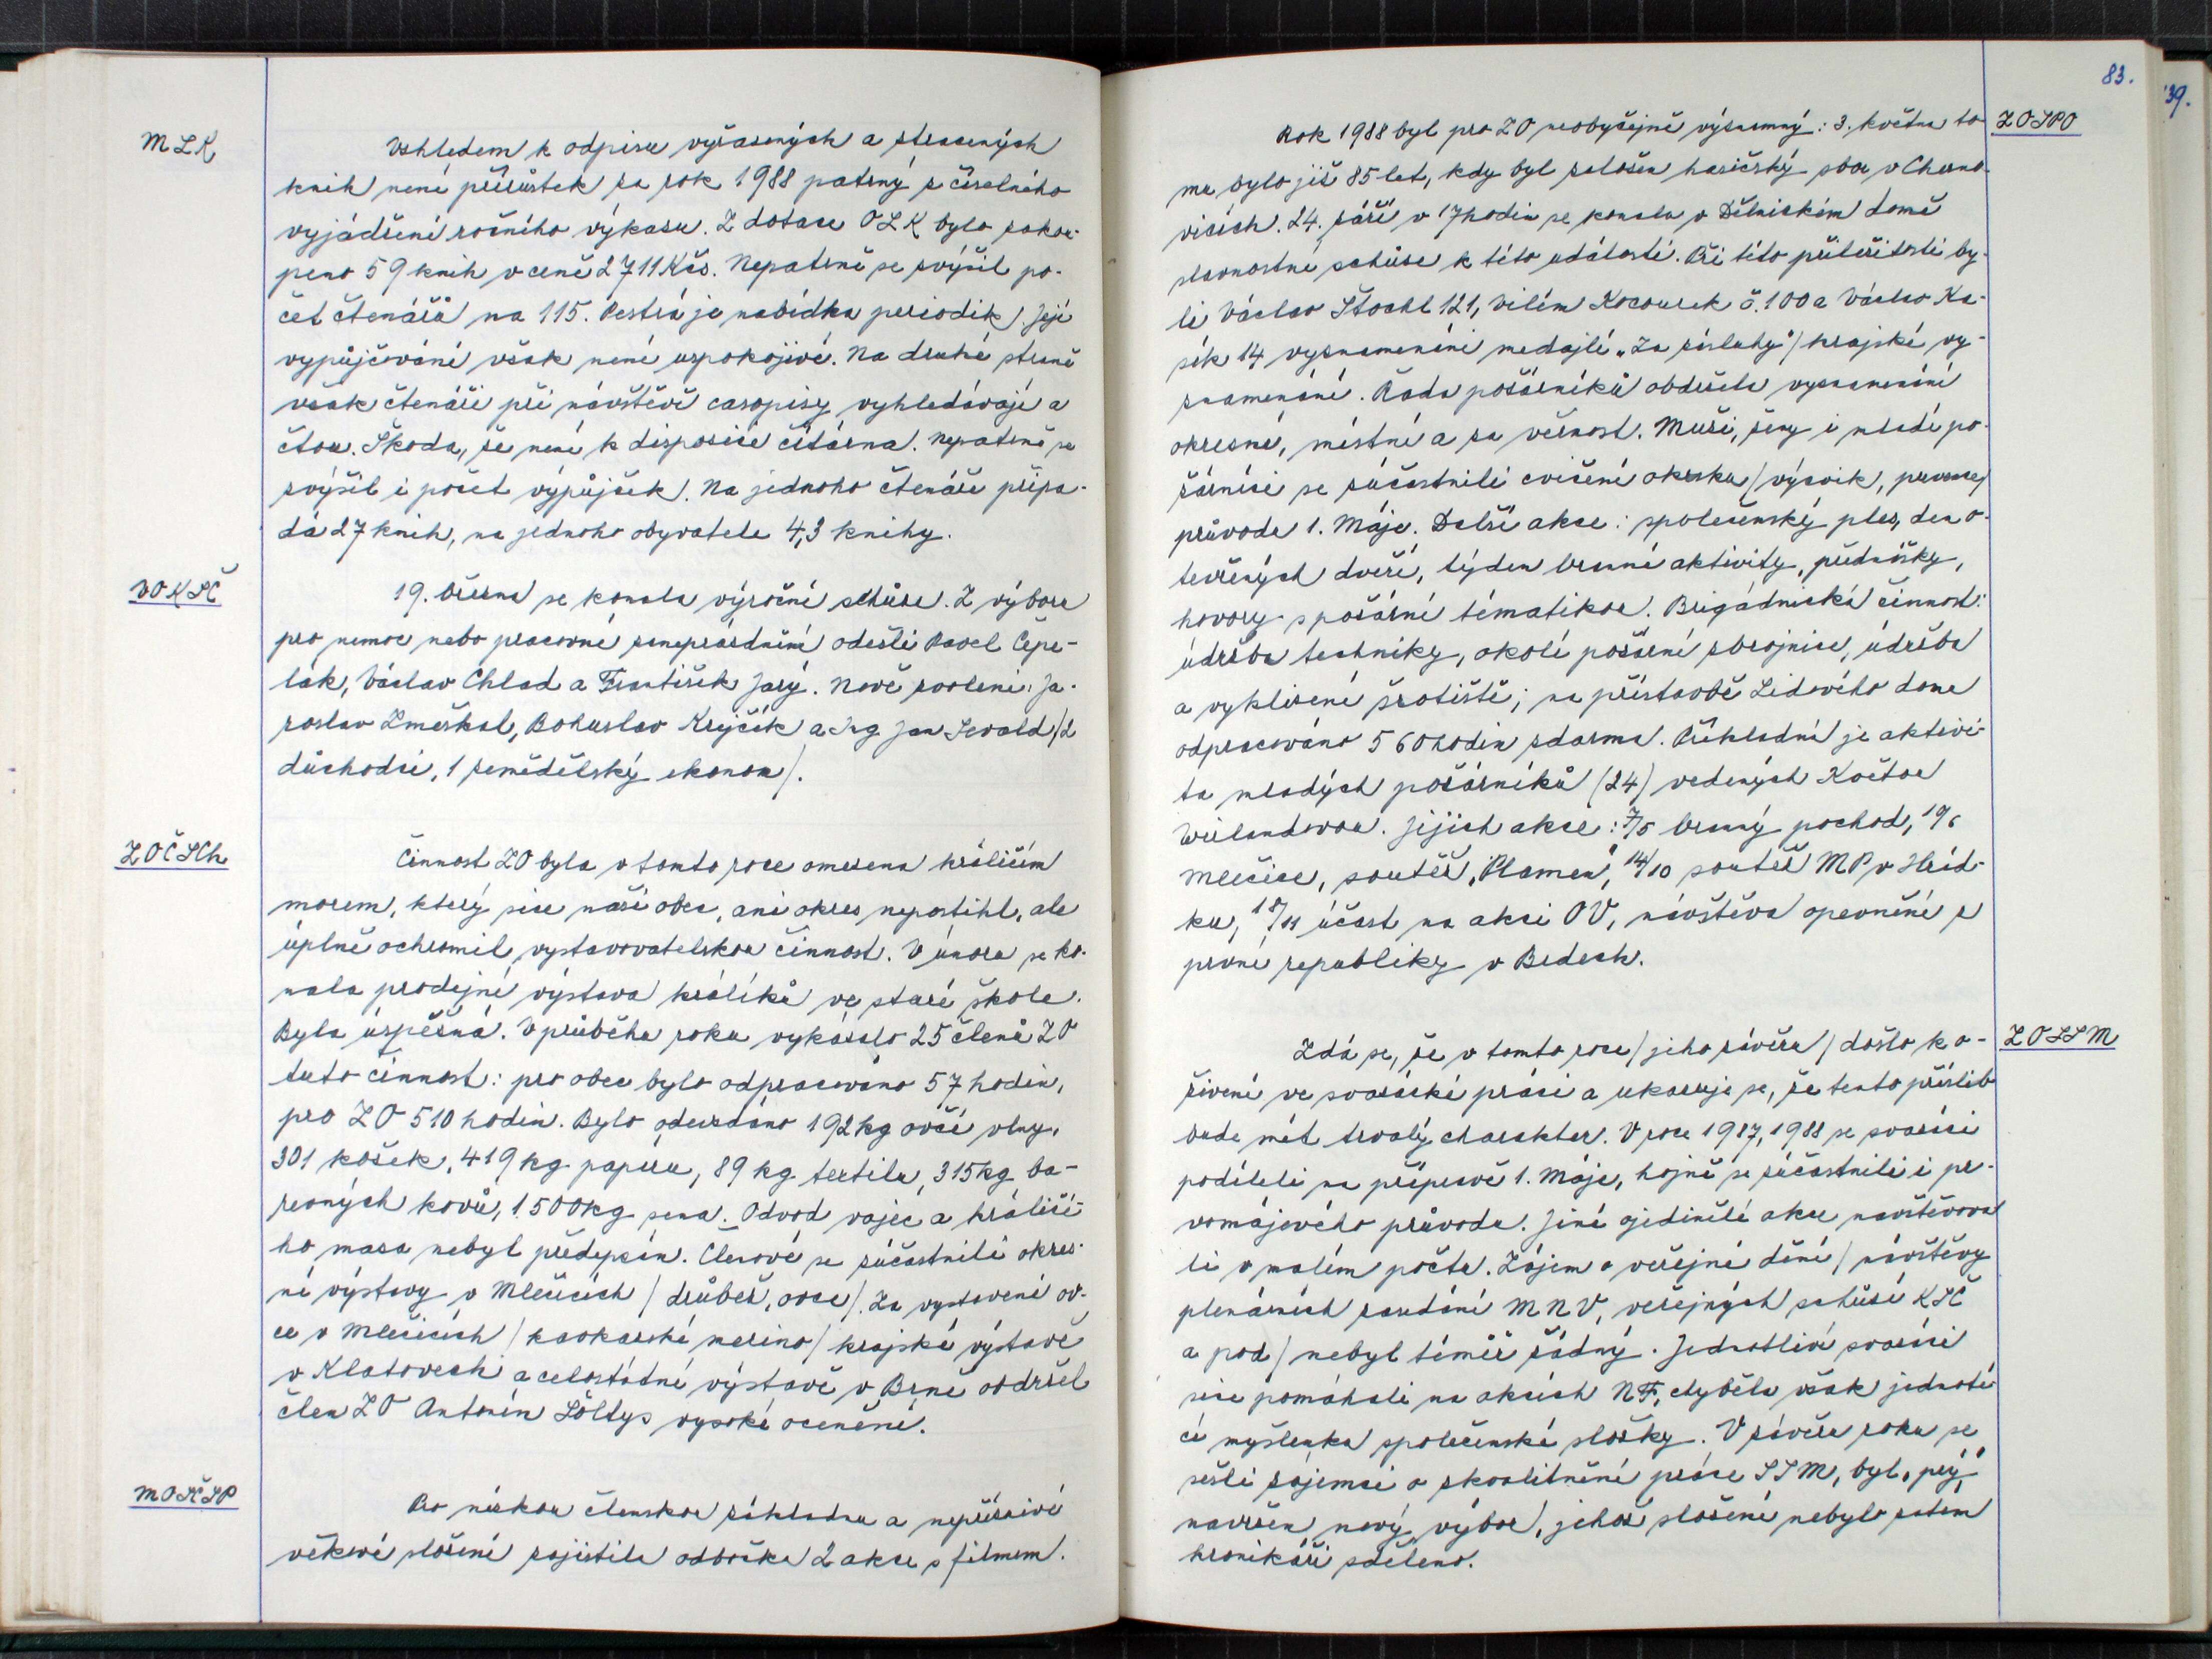 MLK
Vzhledem k odpisu vyřazených a ztracených
knih není přírůstek za rok 1988 patrný z číselného
vyjádření ročního výkazu. Z dotace OLK bylo zakou-
peno 59 knih v ceně 2711 Kčs. Nepatrně se zvýšil po-
čet čtenářů na 115. Pestrá je nabídka periodik, její
vypůjčování však není uspokojivé. Na druhé straně
však čtenáři při návštěvě časopisy vyhledávají a
čtou. Škoda, že není k disposici čítárna. Nepatrně se
zvýšil i počet výpůjček. Na jednoho čtenáře připa-
dá 27 knih, na jednoho obyvatele 4,3 knihy.
VOKSČ
19. března se konala výroční schůze. Z výboru
pro nemoc nebo pracovní zaneprázdnění odešli Pavel Čepe-
lák, Václav Chlad a František Jarý. Nově zvoleni: Ja-
roslav Zmeškal, Bohuslav Krejčík a Ing. Jan Sevald /2
důchodci, 1 zemědělský ekonom/.
ZOČSCh
Činnost ZO byla v tomto roce omezena králičím
morem, který sice naši obec, ani okres nepostihl, ale
úplně ochromil vystavovatelskou činnost. V únoru se ko-
nala prodejní výstava králíků ve staré škole.
Byla úspěšná. V průběhu roku vykázalo 25 členů ZO
tuto činnost: pro obec bylo odpracováno 57 hodin,
pro ZO 510 hodin. Bylo odevzdáno 192 kg ovčí vlny,
301 kožek, 419 kg papíru, 89 kg textilu, 315 kg ba-
revných kovů, 1500 kg sena. Odvod vajec a králičí-
ho masa nebyl předepsán. Členové se zúčastnili okres-
ní výstavy v Mlečicích /drůbež, ovce/. Za vystavení ov-
ce v Mlečicích /kavkazské merino/ krajské výstavě
v Klatovech a celostátní výstavě v Brně obdržel
člen ZO Antonín Šöltys vysoké ocenění.
MOSČSP
Pro nízkou členskou základnu a nepříznivé
věkové složení zajistila odbočka 2 akce s filmem.
83.
39.
ZOSPO
Rok 1988 byl pro ZO neobyčejně významný: 3. května to
mu bylo již 85 let, kdy byl založen hasičský sbor v Chrno-
vicích. 24. září v 17 hodin se konala v Dělnickém domě
slavnostní schůze k této události. Při této příležitosti by-
li Václav Štochl 121, Vilém Kocourek č. 100 a Václav Ka-
sík 14 vyznamenáni medailí „Za zásluhy“ /krajské vy-
znamenání. Řada požárníků obdržela vyznamenání
okresní, místní a za věrnost. Muži, ženy i mladí po-
žárníci se zúčastnili cvičení okrsku /výcvik,
průvodu 1. Máje. Další akce: společenský ples, den o-
tevřených dveří, týden branné aktivity, přednášky,
hovory s požární tématikou. Brigádnická činnost:
údržba techniky, okolí požární zbrojnice, údržba
a vyklizení šrotiště; na přístavbě Lidového domu
odpracováno 560 hodin zdarma. Příkladná je aktivi-
ta mladých požárníků (24) vedených Květou
Wielandovou. Jejich akce: 7/5 branný pochod, 19/6
Mlečice, soutěž „Plamen“, 14/10 soutěž MP v Hrád-
ku, 18/11 účast na akci OV, návštěva opevnění z
první republiky v Brdech.
ZOSSM
Zdá se, že v tomto roce /jeho závěru/ došlo k o-
živení ve svazácké práci a ukazuje se, že tento příslib
bude mít trvalý charakter. V roce 1987, 1988 se svazáci
podíleli na přípravě 1. Máje, hojně se zúčastnili i pr-
vomájového průvodu. Jiné ojedinělé akce navštěvova
li v malém počtu. Zájem o veřejné dění /návštěvy
plenárních zasedání MNV, veřejných schůzí KSČ
a pod/ nebyl téměř žádný. Jednotliví svazáci
sice pomáhali na akcích NF, chyběla však jednotí-
cí myšlenka společenské složky. V závěru roku se
sešli zájemci o zkvalitnění práce SSM, byl „prý“
navržen nový výbor, jehož složení nebylo zatím
kronikáři sděleno.